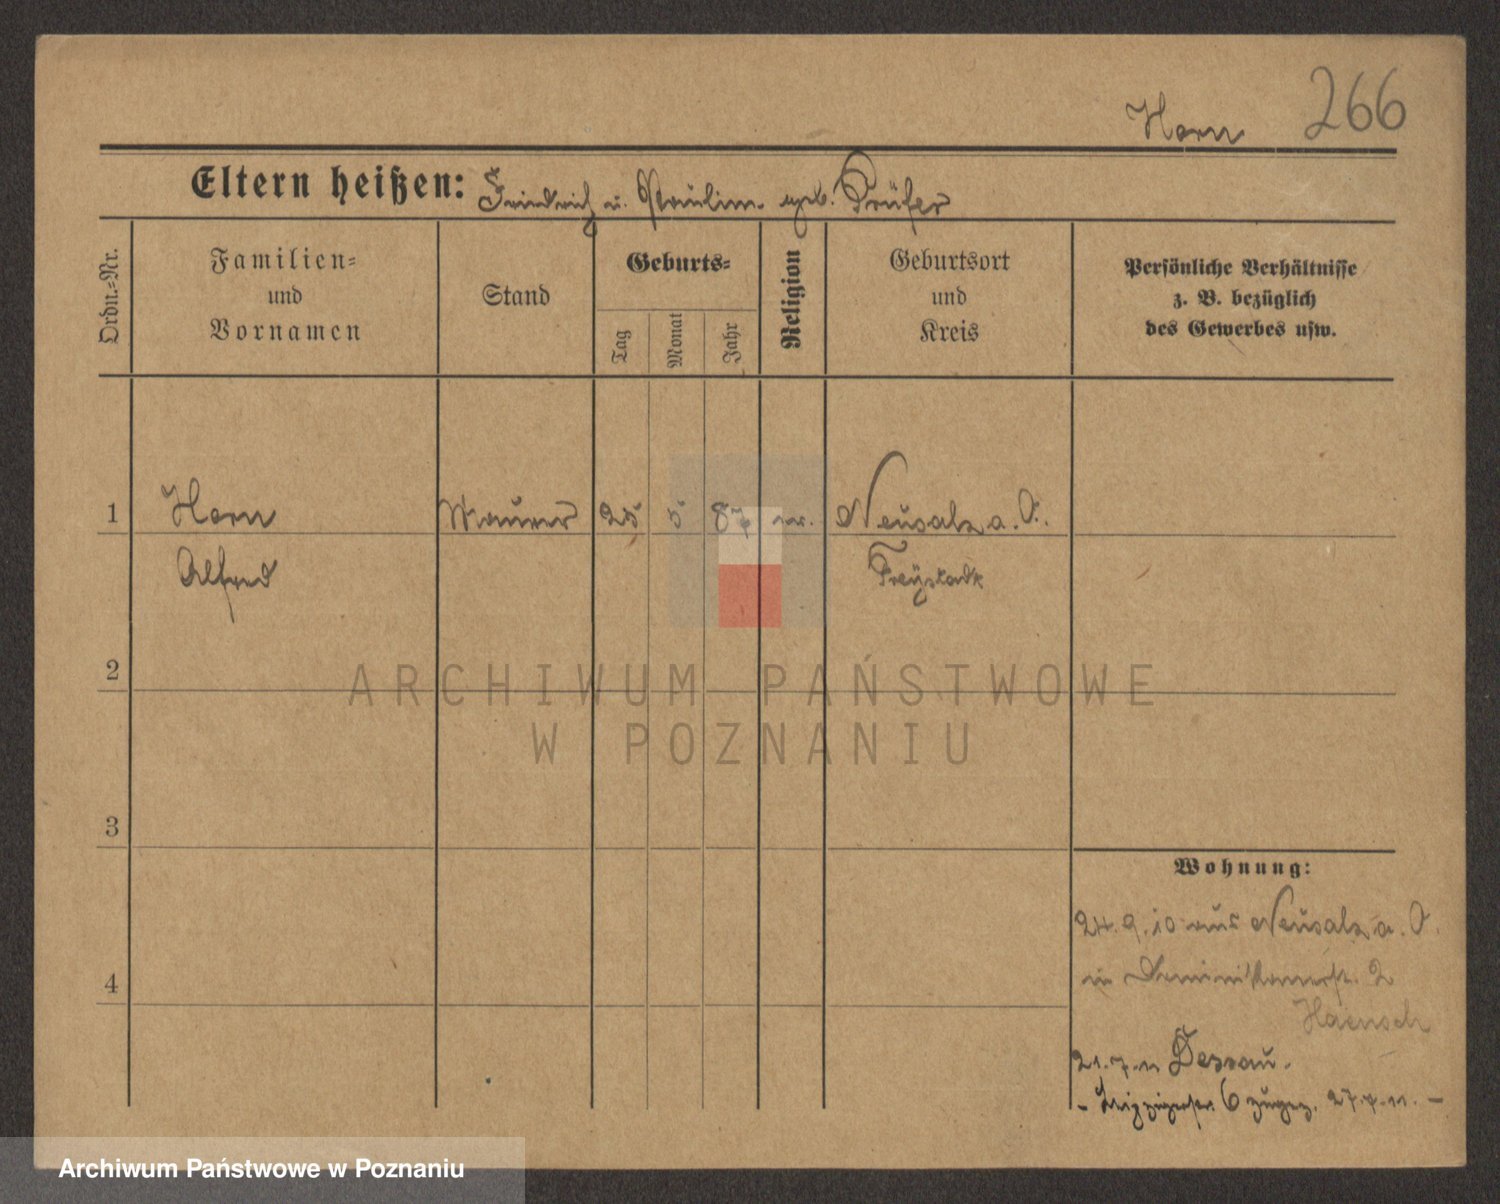 Horn 266
Eltern heißen: Friedrich u. Pauline geb. Prüfer
Ordn.-Nr.
Familien-
und
Vornamen
Stand
Geburts-
Tag
Monat
Jahr
Religion
Geburtsort
und
Kreis
Persönliche Verhältnisse
z. B. bezüglich
des Gewerbes usw.
1 Horn Maurer 25 5 87 ev. Neusalz a. O.
Alfred Freystadt
2
ARCHIWUM PAŃSTWOWE
W POZNANIU
3
Wohnung:
24.9.10 aus Neusalz a. O.
in Dominikanerstr. 2
4
Haensch
21.7.11 Dessau.
- Leipzigerstr. 6 zugez. 27.7.11. -
Archiwum Państwowe w Poznaniu